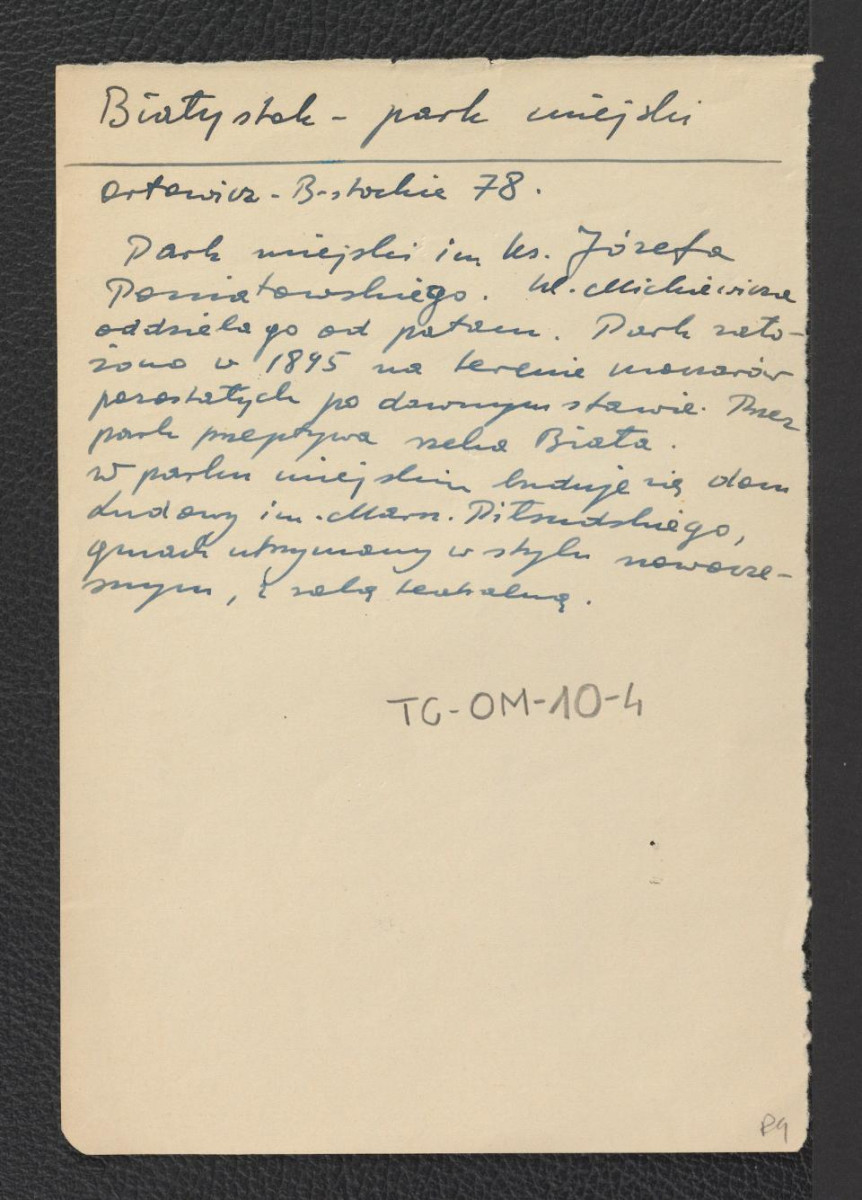 Białystok - park miejski
Orłowicz - B-stockie 78.
Park miejski im Ks. Józefa
Poniatowskiego. Ul. Mickiewicza
oddziela go od pałacu. Park zało-
żono w 1895 na terenie moczarów
pozostałych po dawnym stawie. Przez
park przepływa rzeka Biała.
W parku miejskim buduje się dom
Ludowy im. Marsz. Piłsudskiego,
gmach utrzymany w stylu nowocze-
snym, z salą teatralną.
TG-OM-10-4